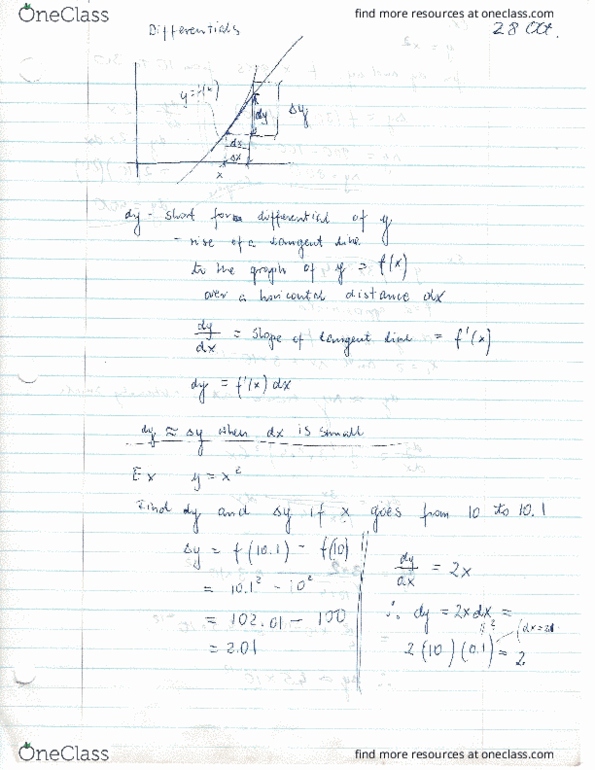 OneClass
find more resources at oneclass.com
Differentials
28 Oct.
y = f(x)
dy
Δy
dx
Δx
x
dy - short form differential of y
- rise of a tangent line
to the graph of y = f(x)
over a horizontal distance dx
dy/dx = slope of tangent line = f'(x)
dy = f'(x) dx
dy ≈ Δy when dx is small
Ex y = x²
Find dy and Δy if x goes from 10 to 10.1
Δy = f(10.1) - f(10)
= 10.1² - 10²
= 102.01 - 100
= 2.01
dy/dx = 2x
∴ dy = 2x dx =
2(10)(0.1) = 2.
OneClass
find more resources at oneclass.com